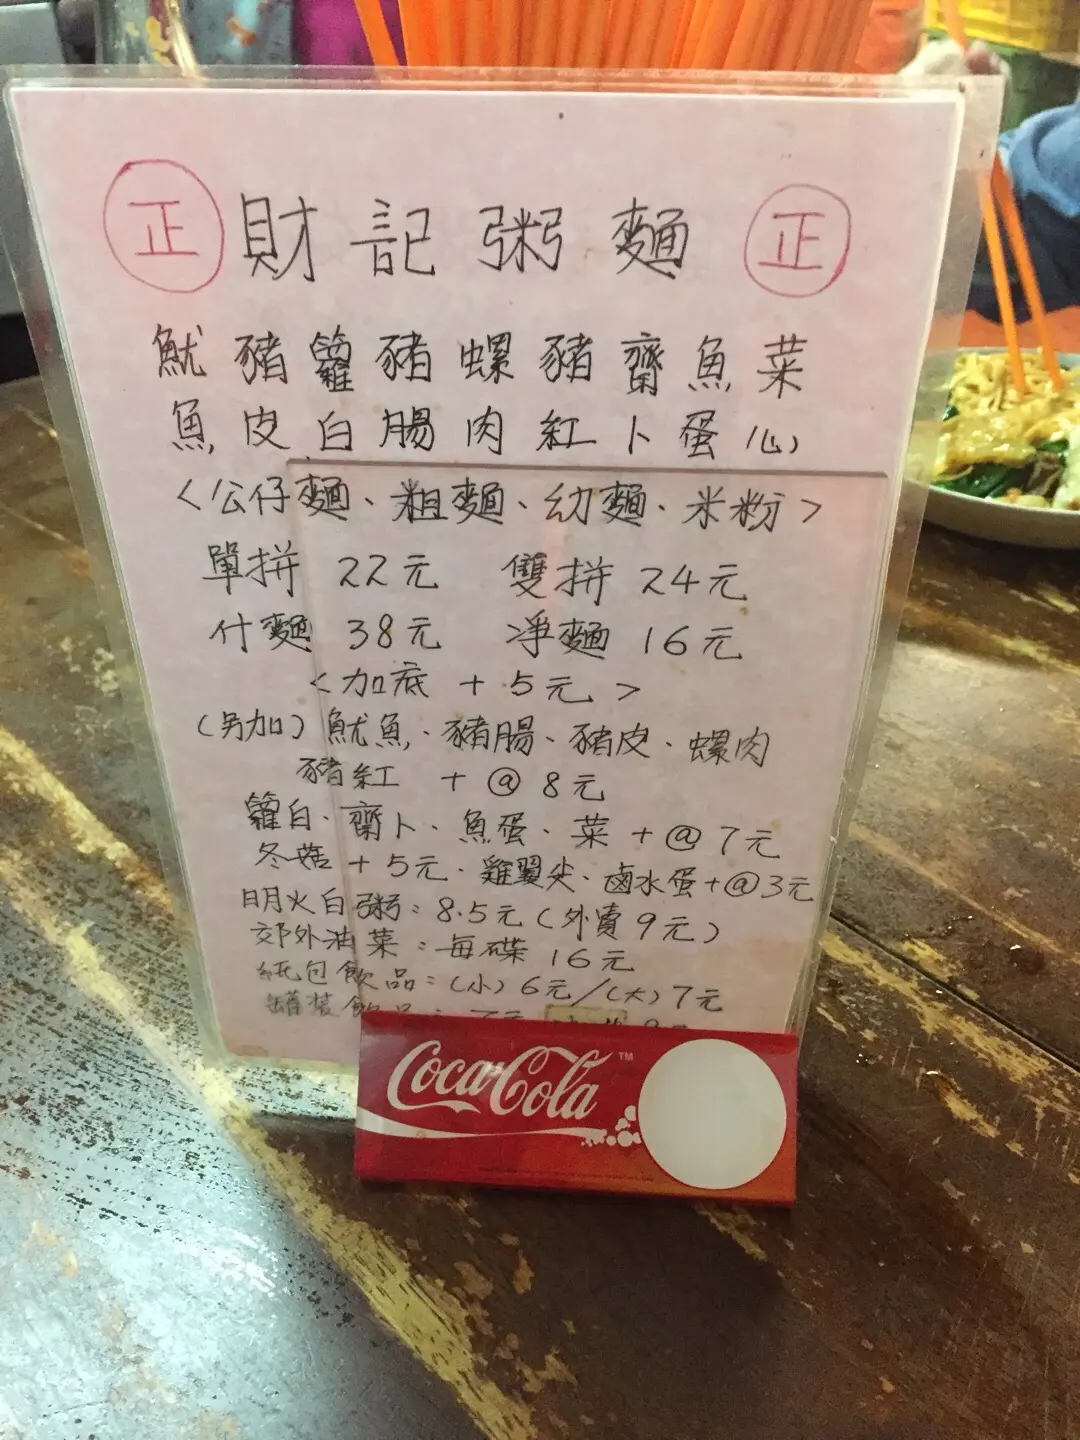 正 財記粥麵 正
魷豬籮豬螺豬齋魚菜
魚皮白腸肉紅卜蛋心
<公仔麵、粗麵、幼麵、米粉>
單拼 22元 雙拼 24元
什麵 38元 净麵 16元
<加底 + 5元>
(另加) 魷魚、豬腸、豬皮、螺肉
豬紅 + @ 8元
籮白、齋卜、魚蛋、菜 + @ 7元
冬菇 + 5元、雞翼尖、鹵水蛋 + @ 3元
明火白粥: 8.5元 (外賣 9元)
郊外油菜: 每碟 16元
紙包飲品: (小) 6元/(大) 7元
罐裝飲品: 7元
Coca-Cola TM